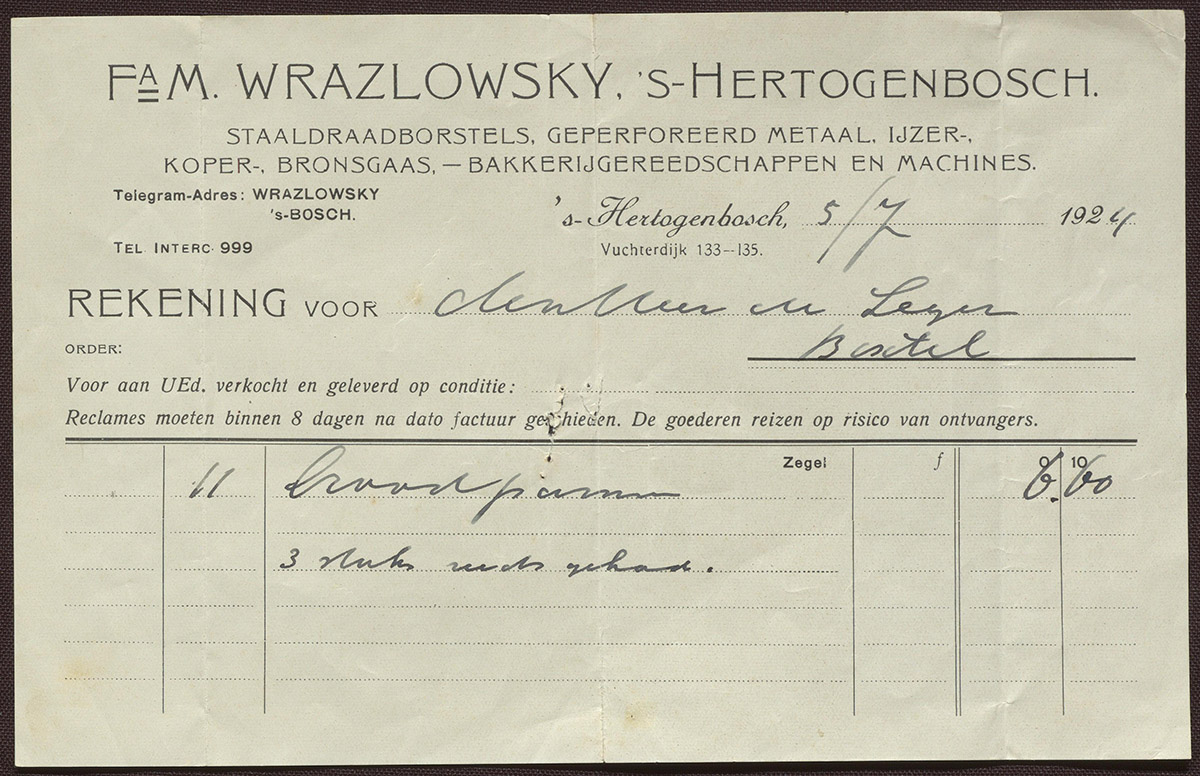 FA M. WRAZLOWSKY, 'S-HERTOGENBOSCH.
STAALDRAADBORSTELS, GEPERFOREERD METAAL, IJZER-,
KOPER-, BRONSGAAS, — BAKKERIJGEREEDSCHAPPEN EN MACHINES.
Telegram-Adres: WRAZLOWSKY
's-BOSCH.
's-Hertogenbosch, 5/7 1924
TEL INTERC. 999
Vuchterdijk 133--135.
REKENING VOOR den Heer de Leyer
Boxtel
ORDER:
Voor aan UEd. verkocht en geleverd op conditie:
Reclames moeten binnen 8 dagen na dato factuur geschieden. De goederen reizen op risico van ontvangers.
Zegel f 0 10
11 broodpannen 6.60
3 stuks reeds gehad.